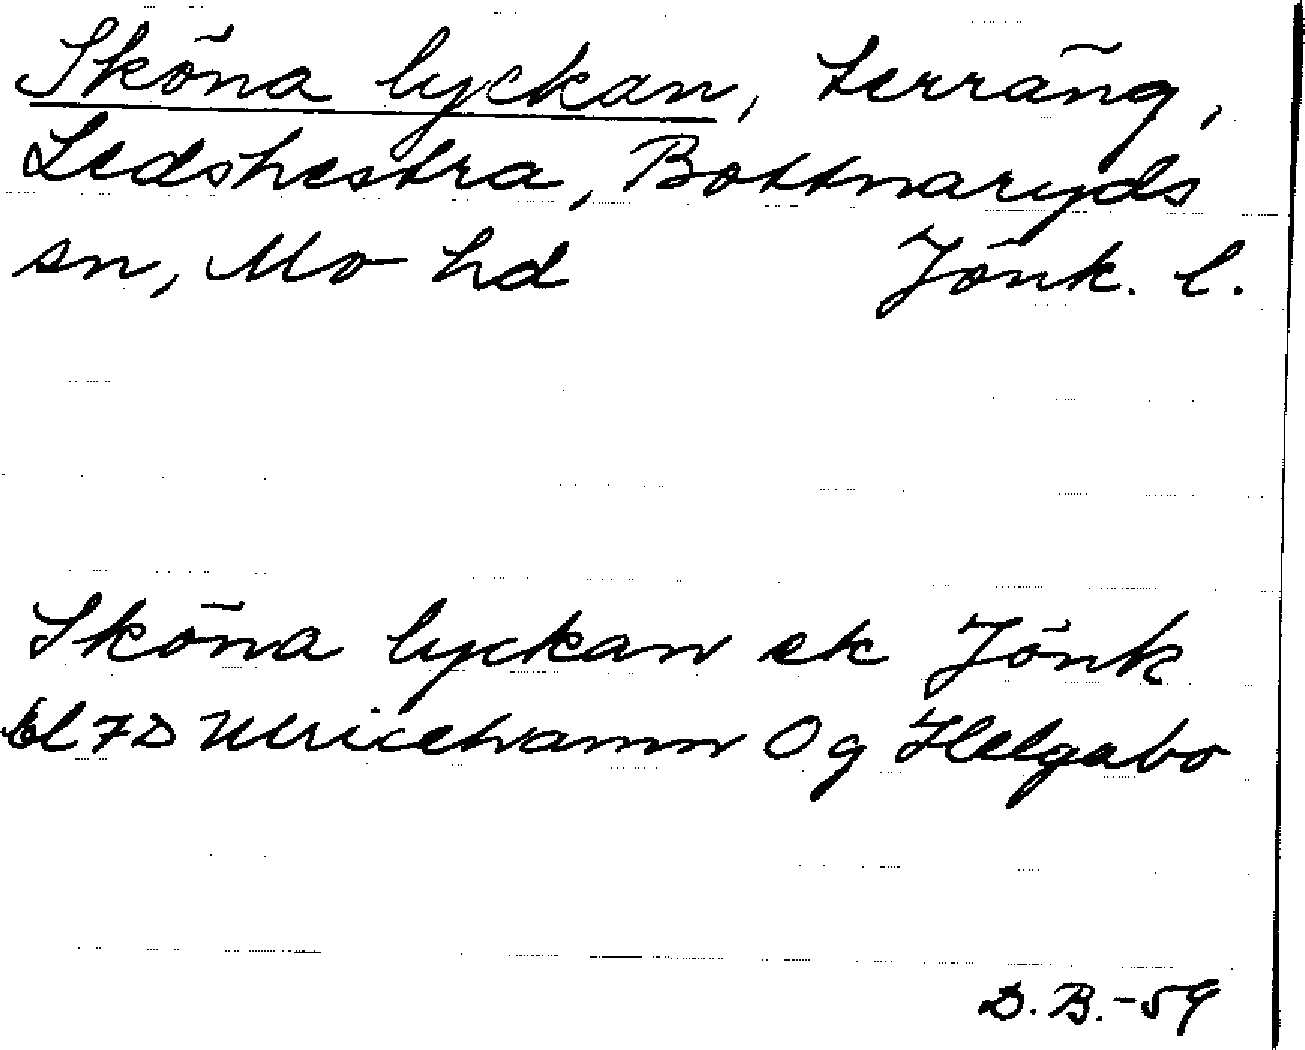 Sköna lyckan, terräng,
Ledshestra, Bottnaryds
sn, Mo hd Jönk. l.
Sköna lyckan ek Jönk
bl 7D Ulricehamn Og Helgabo
D.B.-59